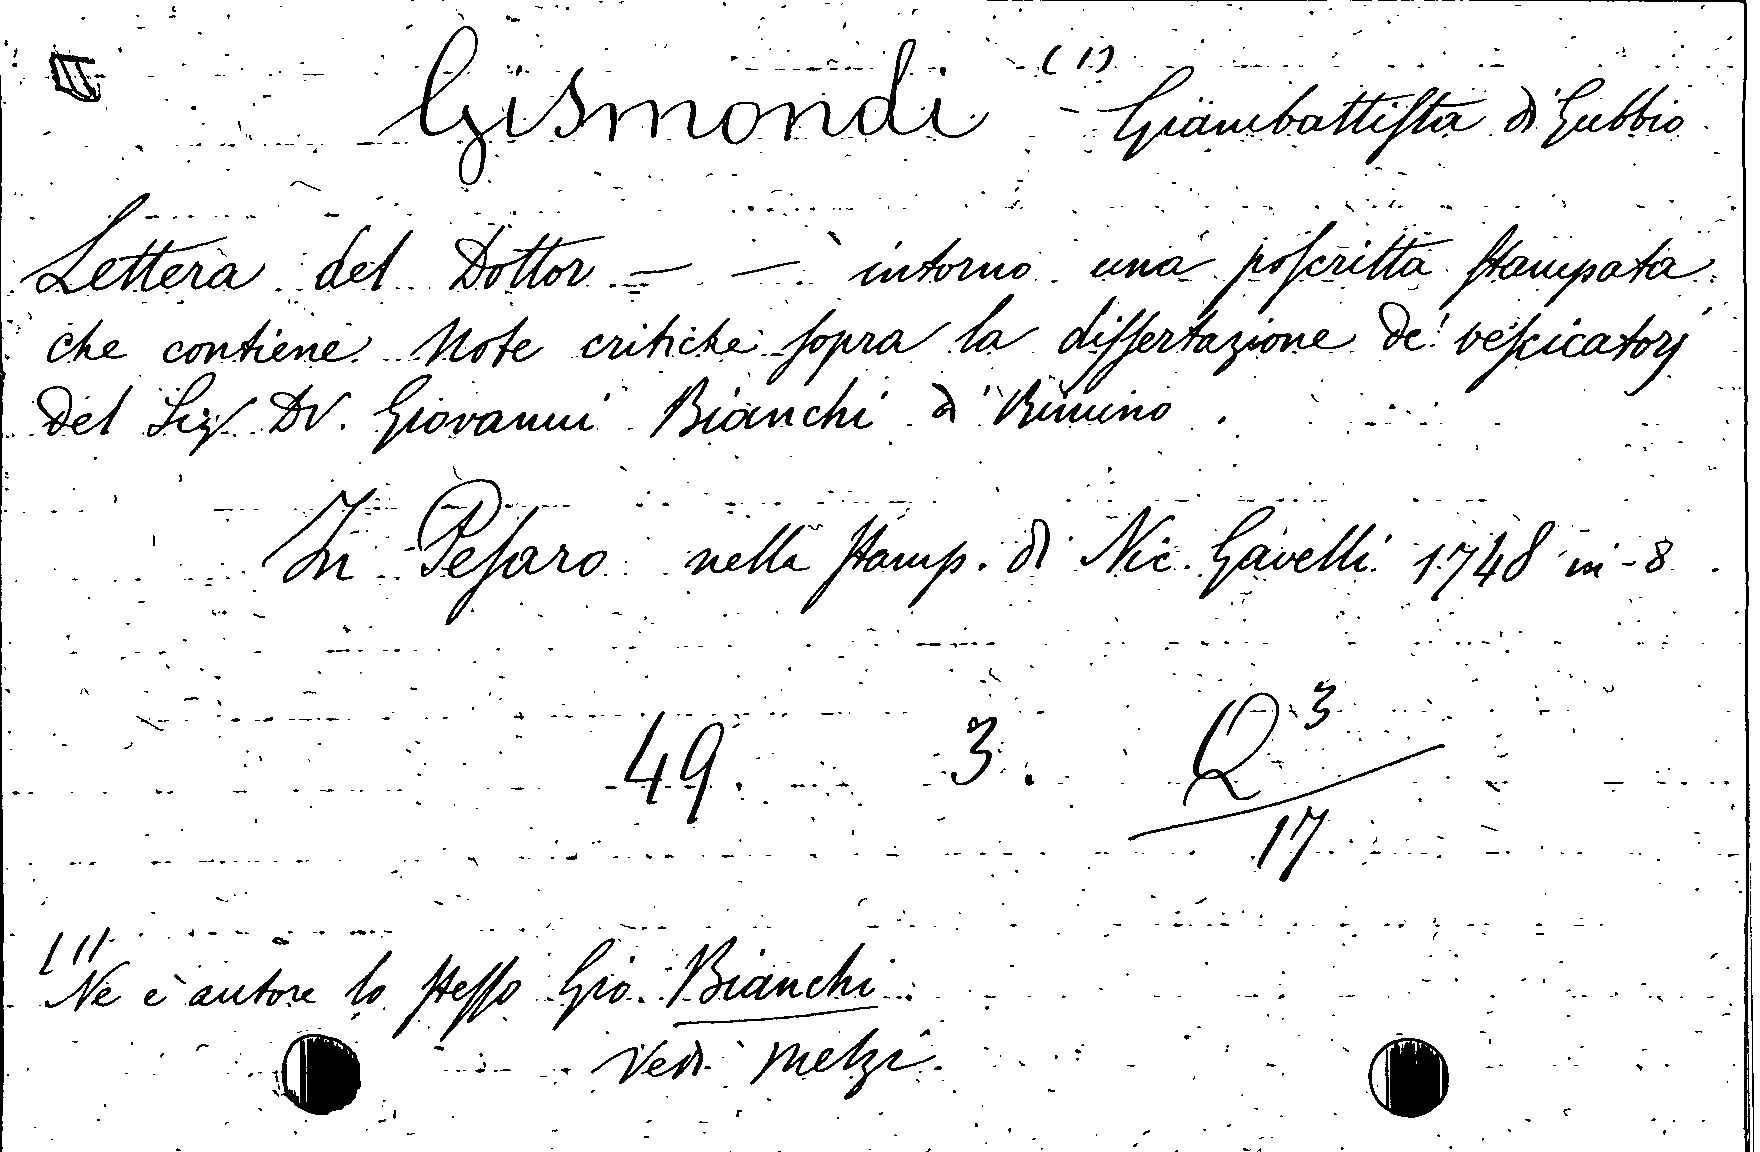 Gismondi (1) - Giambattiſta di Gubbio
Lettera del Dottor — — intorno una poſcritta ſtampata
che contiene Note critiche ſopra la diſſertazione de' veſcicatorj
del Sig. Dr. Giovanni Bianchi di Rimino.
In Peſaro nella ſtamp. di Nic. Gavelli 1748 in-8.
49. 3. Q3
17
(1)
Ne è autore lo ſteſſo Gio. Bianchi.
Vedi Melzi.